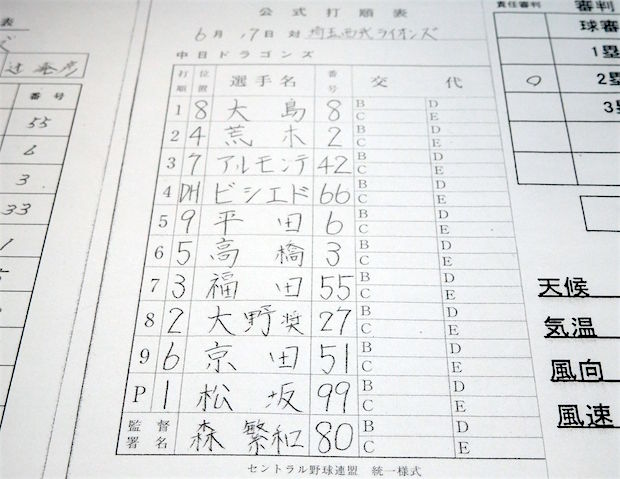 公式打順表
6月17日 対 埼玉西武ライオンズ
中日ドラゴンズ
打順 位置 選手名 番号 交代
1 8 大島 8 B D C E
2 4 荒木 2 B D C E
3 7 アルモンテ 42 B D C E
4 DH ビシエド 66 B D C E
5 9 平田 6 B D C E
6 5 高橋 3 B D C E
7 3 福田 55 B D C E
8 2 大野奨 27 B D C E
9 6 京田 51 B D C E
P 1 松坂 99 B D C E
監督署名 森繁和 80 B D C E
セントラル野球連盟 統一様式
表
ズ
辻発彦
番号
55
6
3
33
1
責任審判 審判
球審
1塁
2塁
3塁
天候
気温
風向
風速